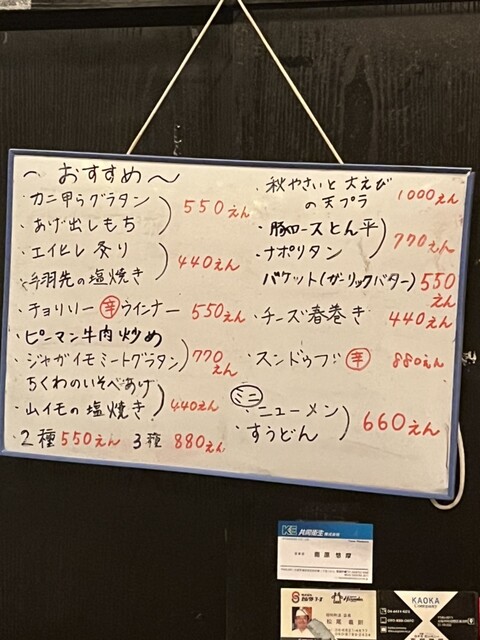 ～おすすめ～
・カニ甲らグラタン
・あげ出しもち
550えん
・エイヒレ炙り
・手羽先の塩焼き
440えん
・チョリソー辛ウインナー 550えん
・ピーマン牛肉炒め
・ジャガイモミートグラタン
770えん
ちくわのいそべあげ
・山イモの塩焼き
440えん
2種550えん 3種 880えん
・秋やさいと大えび
の天プラ
1000えん
・豚ロースとん平
・ナポリタン
770えん
バケット(ガーリックバター) 550えん
・チーズ春巻き 440えん
・スンドゥブ 辛 880えん
ミニ
・ニューメン
・すうどん
660えん
KS 共同衛生株式会社
松尾
KAOKA